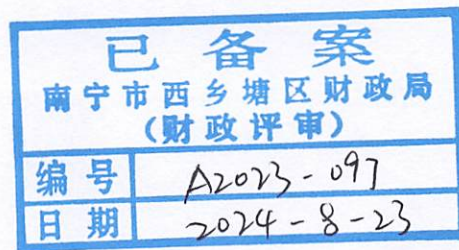 已备案
南宁市西乡塘区财政局
（财政评审）
编号 A2023-097
日期 2024-8-23